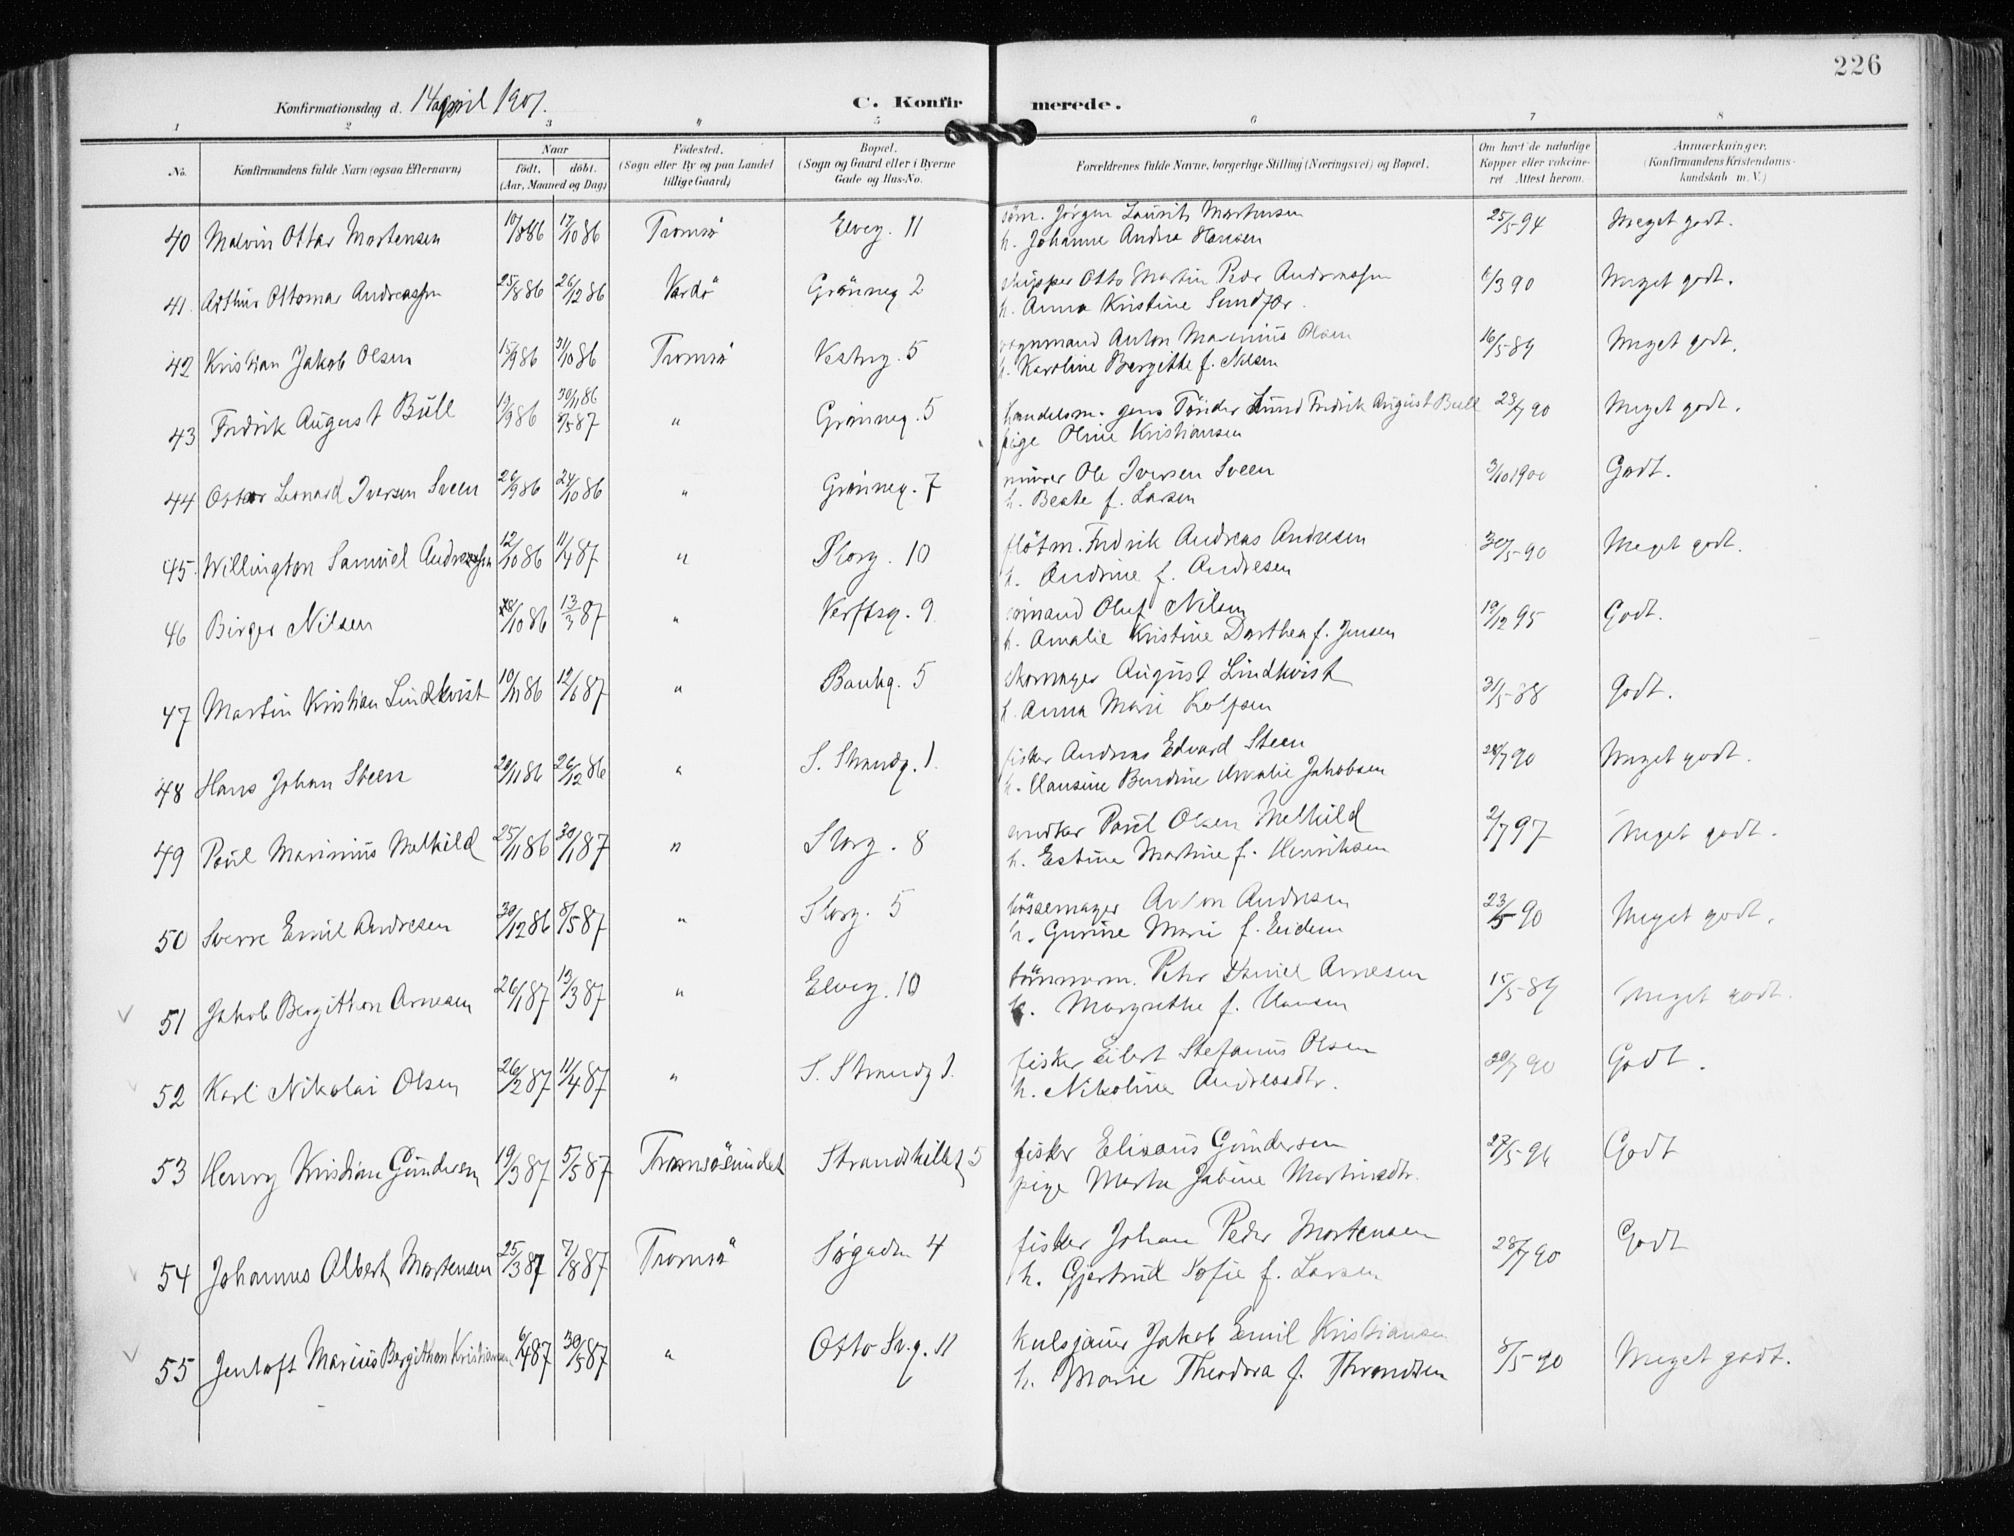 226
Konfirmationsdag d. 14 april 1901.
C. Konfirmerede.
1 2 3 4 5 6 7 8
No. Konfirmandens fulde Navn (ogsaa Efternavn) Naar født. døbt. (Aar, Maaned og Dag) Fødested. (Sogn eller By og paa Landet tillige Gaard) Bopæl. (Sogn og Gaard eller i Byerne Gade og Hus-No. Forældrenes fulde Navne, borgerlige Stilling (Næringsvei) og Bopæl. Om havt de naturlige Kopper eller vaccineret Attest herom. Anmærkninger. (Konfirmandens Kristendomskundskab m. V.)
40 Malvin Ottar Mortensen 10/8 86 17/10 86 Tromsö Elveg. 11 Jörgen Laurits Mortensen 25/5 94 Meget godt.
h. Johanne Andrea Hansen
41 Arthur Ottomar Andreassen 25/8 86 26/12 86 Vardö Grönneg 2 skipper Otto Martin Peder Andreassen 6/3 90 Meget godt.
h. Anna Kristine Sundfær.
42 Kristian Jakob Olsen 15/9 86 31/10 86 Tromsö Vestreg. 5 vognmand Anton Marinius Olsen 16/5 89 Meget godt.
h. Karoline Bergitthe f. Nilsen
43 Fredrik August Bull 19/9 86 30/11 86 8/5 87 " Grönneg. 5 handelsm. Jens Tönder Lund Fredrik August Bull 23/7 90 Meget godt.
pige Oline Kristiansen
44 Oskar Leonard Iversen Sveen 26/9 86 24/10 86 " Grönneg. 7 murer Ole Iversen Sveen 3/10 1900 Godt.
h. Beate f. Larsen
45 Willington Samuel Andreassen 12/10 86 11/4 87 " Storg. 10 flötm. Fredrik Andreas Andresen 30/5 90 Meget godt.
h. Andrine f. Andresen
46 Birger Nilsen 28/10 86 13/3 87 " Verftsg. 9 Oluf Nilsen 19/12 95 Godt.
h. Amalie Kristine Dorthea f. Jensen
47 Martin Kristian Lindkvist 10/11 86 12/6 87 " Bankg. 5 skomager August Lindkvist 31/5 88 Godt.
h. Anna Marie Rolfsen
48 Hans Johan Steen 20/11 86 26/12 86 " S. Strandg. 1. fisker Andreas Edvard Steen 28/7 90 Meget godt.
h. Hansine Bendine Amalie Jakobsen
49 Paul Marinius Melkild 25/11 86 30/1 87 " Storg. 8 snedker Paul Olsen Melkild 2/7 97 Meget godt.
h. Estine Martine f. Henriksen
50 Sverre Emil Andresen 30/12 86 8/5 87 " Storg. 5 bössemager Anton Andresen 23/5 90 Meget godt.
h. Gurine Marie f. Eidem
51 Jakob Bergithon Arnesen 26/1 87 13/3 87 " Elveg. 10 tömmerm. Peter Daniel Arnesen 15/5 89 Meget godt.
h. Margrethe f. Hansen
52 Karl Nikolai Olsen 26/2 87 11/4 87 " S. Strandg 1. fisker Eilert Stefanus Olsen 28/7 90 Godt.
h. Nikoline Andreasdtr.
53 Henry Kristian Gundersen 19/3 87 5/5 87 Tromsösundet Strandskillet 5 fisker Elisæus Gundersen 27/5 96 Godt
pige Marta Jabine Martinsdtr.
54 Johannes Albert Mortensen 25/3 87 7/8 87 Tromsö Søgaden 4 fisker Johan Peder Mortensen 28/7 90 Godt
h. Gjertrud Sofie f. Larsen
55 Jentoft Marius Bergithon Kristiansen 6/4 87 30/5 87 " Otto Sv.g. 11 kulsjauer Jakob Emil Kristiansen 8/5 90 Meget godt.
h. Marie Theodora f. Throndsen